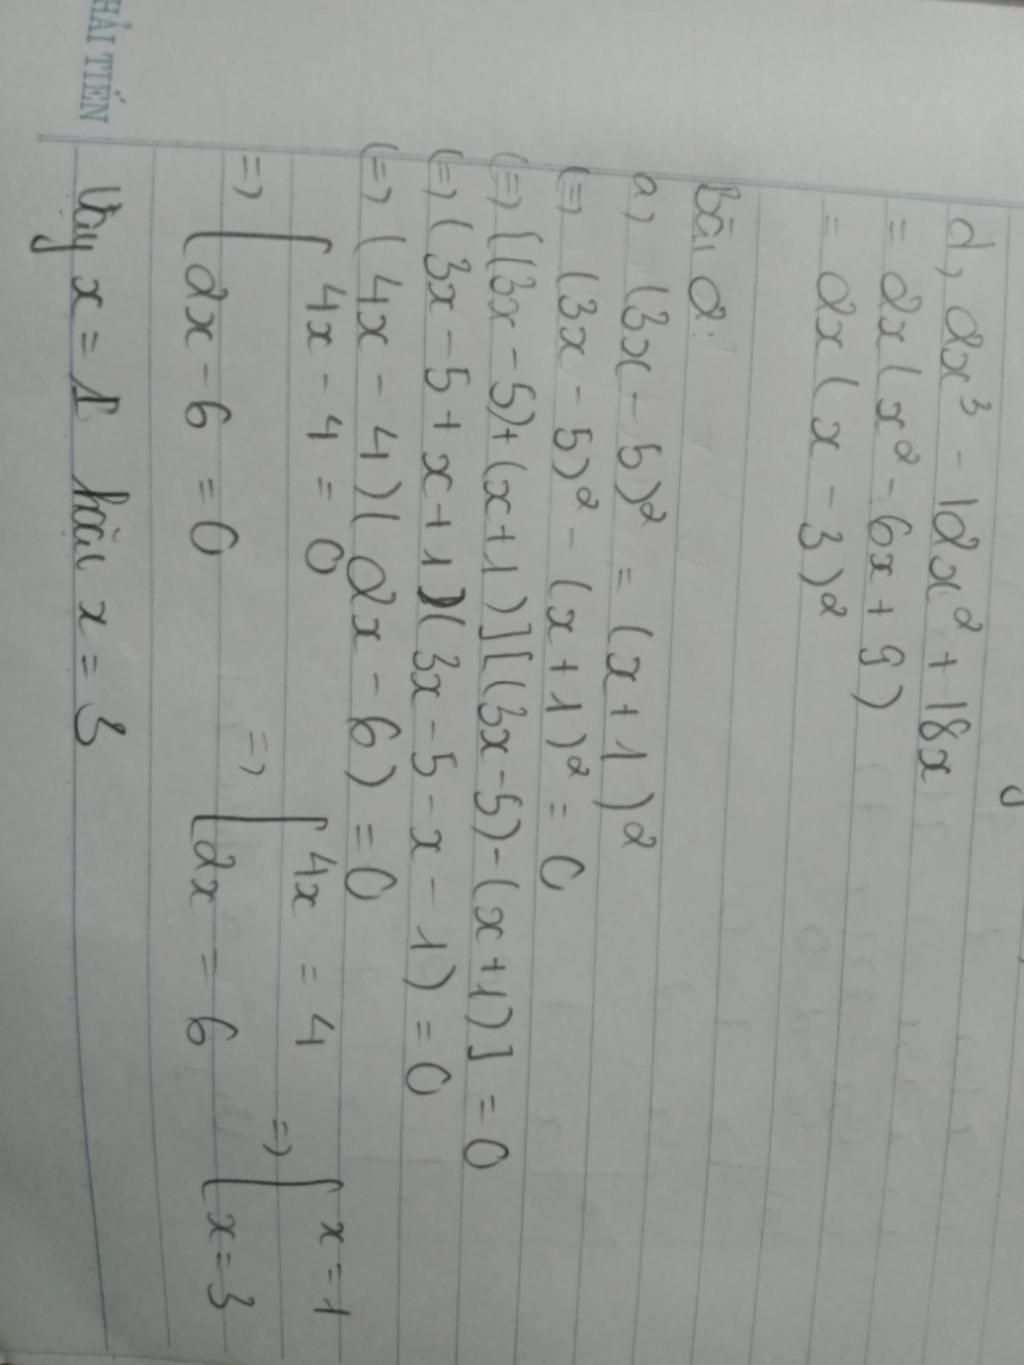 d, 2x³ - 12x² + 18x
= 2x(x² - 6x + 9)
= 2x(x - 3)²
Bài 2:
a, (3x - 5)² = (x + 1)²
(=) (3x - 5)² - (x + 1)² = 0
(=) [(3x - 5) + (x + 1)][(3x - 5) - (x + 1)] = 0
(=) (3x - 5 + x + 1)(3x - 5 - x - 1) = 0
(=) (4x - 4)(2x - 6) = 0
=) [ 4x - 4 = 0 =) [ 4x = 4 =) [ x = 1
2x - 6 = 0 2x = 6 x = 3
Vậy x = 1 hoặc x = 3
HẢI TIẾN